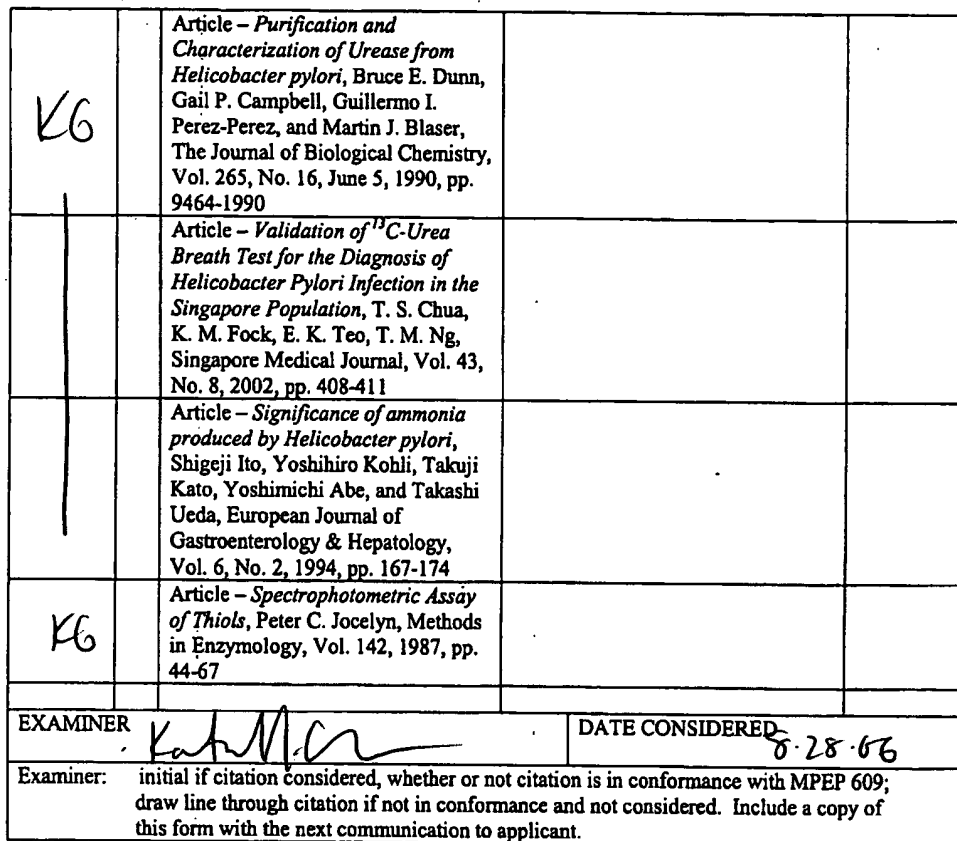 Article – Purification and
Characterization of Urease from
Helicobacter pylori, Bruce E. Dunn,
Gail P. Campbell, Guillermo I.
Perez-Perez, and Martin J. Blaser,
The Journal of Biological Chemistry,
Vol. 265, No. 16, June 5, 1990, pp.
9464-1990
KG
Article – Validation of ¹³C-Urea
Breath Test for the Diagnosis of
Helicobacter Pylori Infection in the
Singapore Population, T. S. Chua,
K. M. Fock, E. K. Teo, T. M. Ng,
Singapore Medical Journal, Vol. 43,
No. 8, 2002, pp. 408-411
Article – Significance of ammonia
produced by Helicobacter pylori,
Shigeji Ito, Yoshihiro Kohli, Takuji
Kato, Yoshimichi Abe, and Takashi
Ueda, European Journal of
Gastroenterology & Hepatology,
Vol. 6, No. 2, 1994, pp. 167-174
Article – Spectrophotometric Assay
of Thiols, Peter C. Jocelyn, Methods
in Enzymology, Vol. 142, 1987, pp.
44-67
KG
EXAMINER
DATE CONSIDERED 8·28·06
Examiner: initial if citation considered, whether or not citation is in conformance with MPEP 609;
draw line through citation if not in conformance and not considered. Include a copy of
this form with the next communication to applicant.